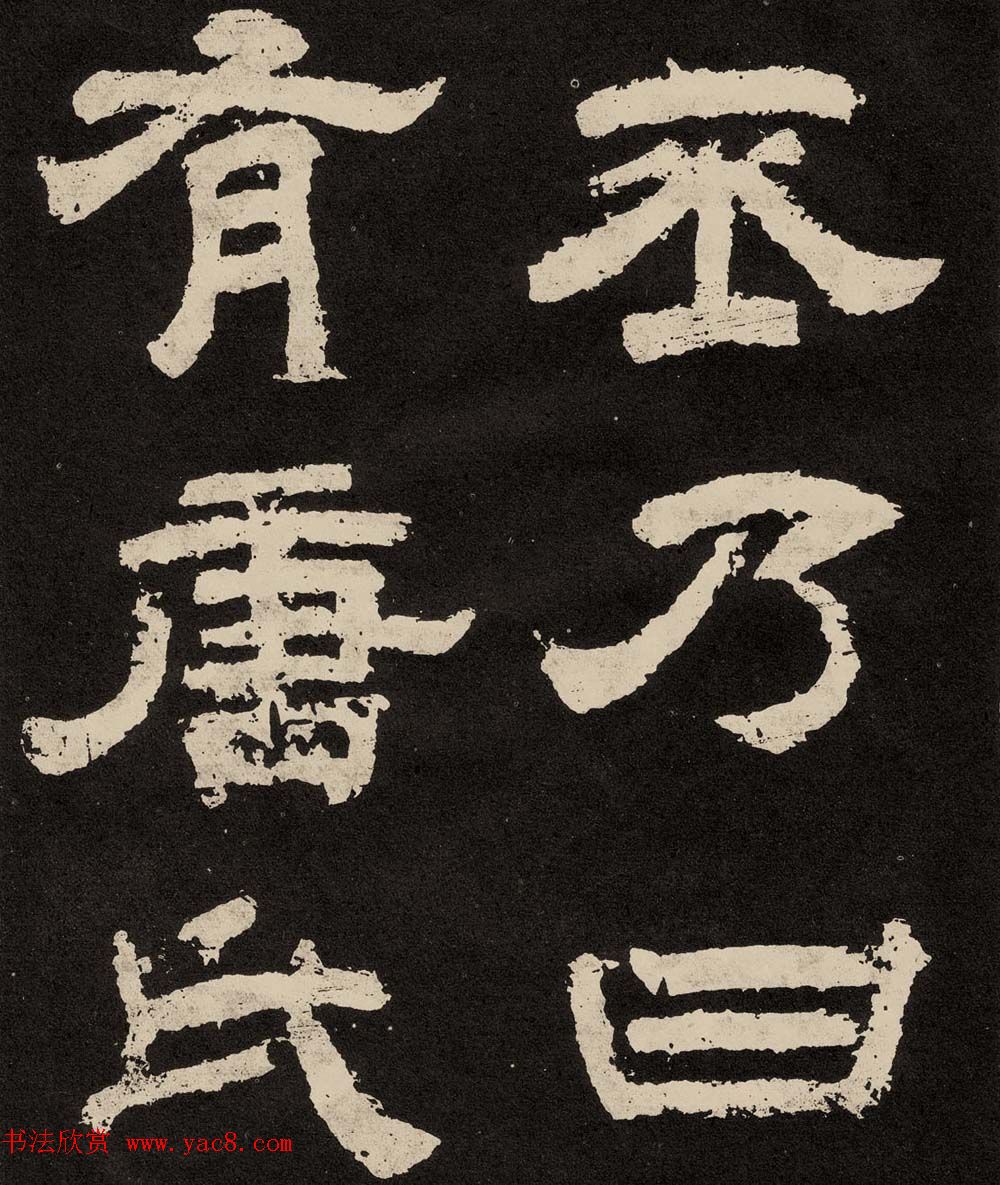 丕乃曰
有唐氏
书法欣赏 www.yac8.com